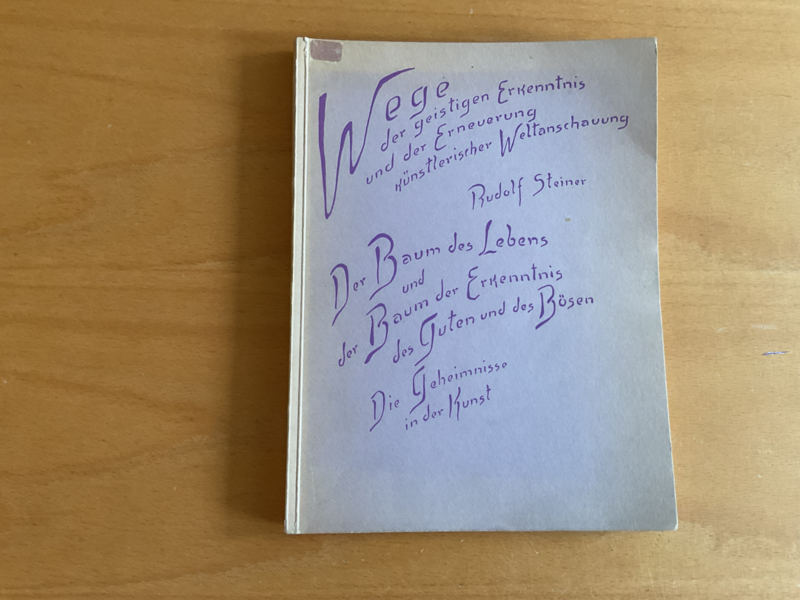 Wege
der geistigen Erkenntnis
und der Erneuerung
künstlerischer Weltanschauung
Rudolf Steiner
Der Baum des Lebens
und
der Baum der Erkenntnis
des Guten und des Bösen
Die Geheimnisse
in der Kunst